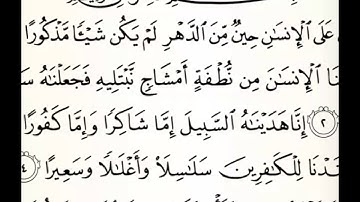 عَلَى ٱلْإِنسَٰنِ حِينٌ مِّنَ ٱلدَّهْرِ لَمْ يَكُن شَيْـًٔا مَّذْكُورًا
نَا ٱلْإِنسَٰنَ مِن نُّطْفَةٍ أَمْشَاجٍ نَّبْتَلِيهِ فَجَعَلْنَٰهُ سَ
٢ إِنَّا هَدَيْنَٰهُ ٱلسَّبِيلَ إِمَّا شَاكِرًا وَإِمَّا كَفُورًا
تَدْنَا لِلْكَٰفِرِينَ سَلَٰسِلَا۟ وَأَغْلَٰلًا وَسَعِيرًا ٤